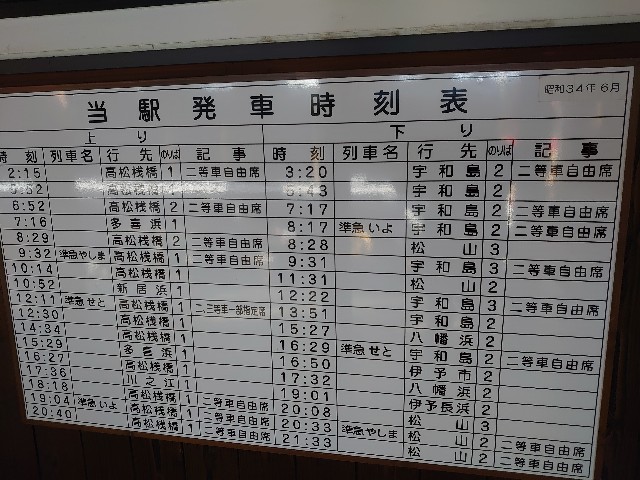 当駅発車時刻表
昭和34年6月
上り 下り
時刻 列車名 行先 のりば 記事 時刻 列車名 行先 のりば 記事
2:15 高松桟橋 1 二等車自由席 3:20 宇和島 2 二等車自由席
高松桟橋 1 5:43 宇和島 2
6:52 高松桟橋 2 二等車自由席 7:17 宇和島 2 二等車自由席
7:16 多喜浜 1 8:17 準急いよ 宇和島 2 二等車自由席
8:29 高松桟橋 2 二等車自由席 8:28 松山 3
9:32 準急やしま 高松桟橋 1 二等車自由席 9:31 宇和島 3 二等車自由席
10:14 高松桟橋 1 11:31 松山 2
10:52 新居浜 1 12:22 宇和島 3 二等車自由席
12:11 準急せと 高松桟橋 1 二、三等車一部指定席 13:51 宇和島 2
12:30 高松桟橋 1 15:27 八幡浜 2
14:34 高松桟橋 1 16:29 準急せと 宇和島 2 二等車自由席
15:29 多喜浜 1 16:50 伊予市 2
16:27 高松桟橋 1 17:32 八幡浜 2
17:36 川之江 1 19:01 伊予長浜 2
18:18 高松桟橋 1 二等車自由席 20:08 松山 3
19:04 準急いよ 高松桟橋 1 二等車自由席 20:33 準急やしま 松山 2 二等車自由席
20:40 高松桟橋 1 二等車自由席 21:33 松山 2 二等車自由席